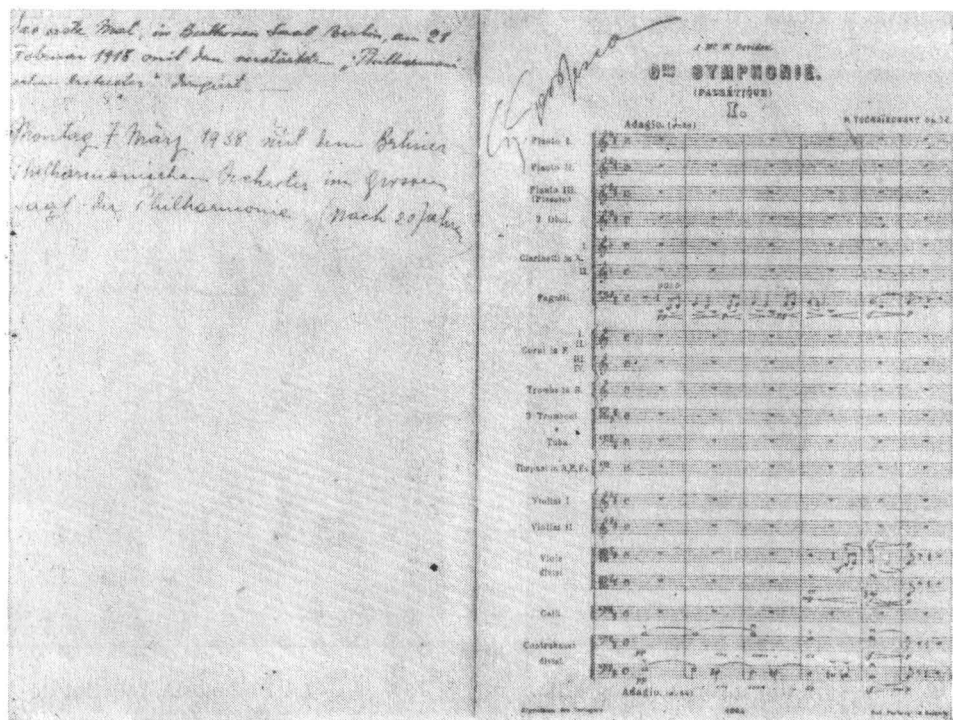 Das erste Mal, im Beethoven Saal Berlin, am 28
Februar 1918 mit dem verstärkten „Philharmoni
schen Orchester" dirigiert
Montag 7 März 1938 mit dem Berliner
Philharmonischen Orchester im Grossen
Saal der Philharmonie (nach 20 Jahren
SYMPHONIE.
(PATHÉTIQUE)
I.
Adagio.
P. TSCHAÏKOWSKY Op. 74.
Flauto I.
Flauto II.
Flauto III.
(Piccolo)
2 Oboi.
I.
Clarinetti in A.
II.
SOLO
Fagotti.
I.
II.
Corni in F.
III.
IV.
Trombe in B.
3 Tromboni
Tuba.
Timpani in A, E, Fis.
Violini I
Violini II
Viole
divisi
Celli.
Contrabassi
divisi.
Adagio.